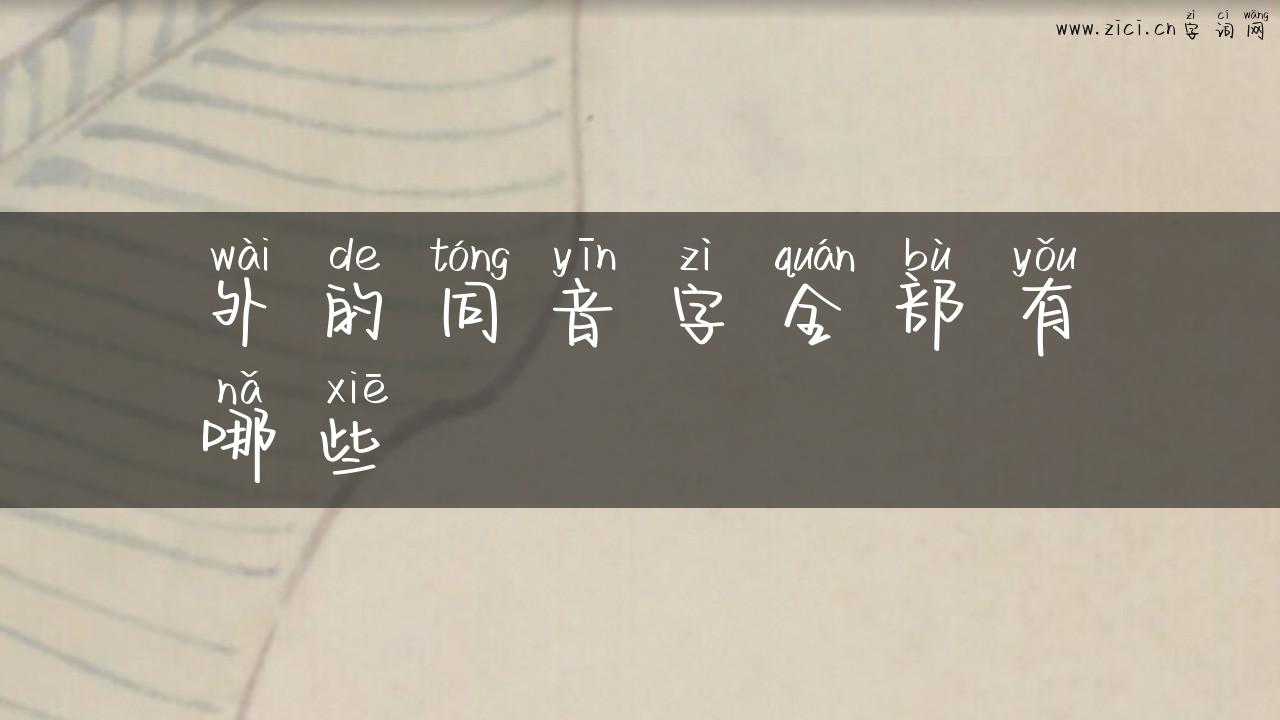 zì cí wǎng
www.zici.cn 字 词 网
wài de tóng yīn zì quán bù yǒu
外 的 同 音 字 全 部 有
nǎ xiē
哪 些